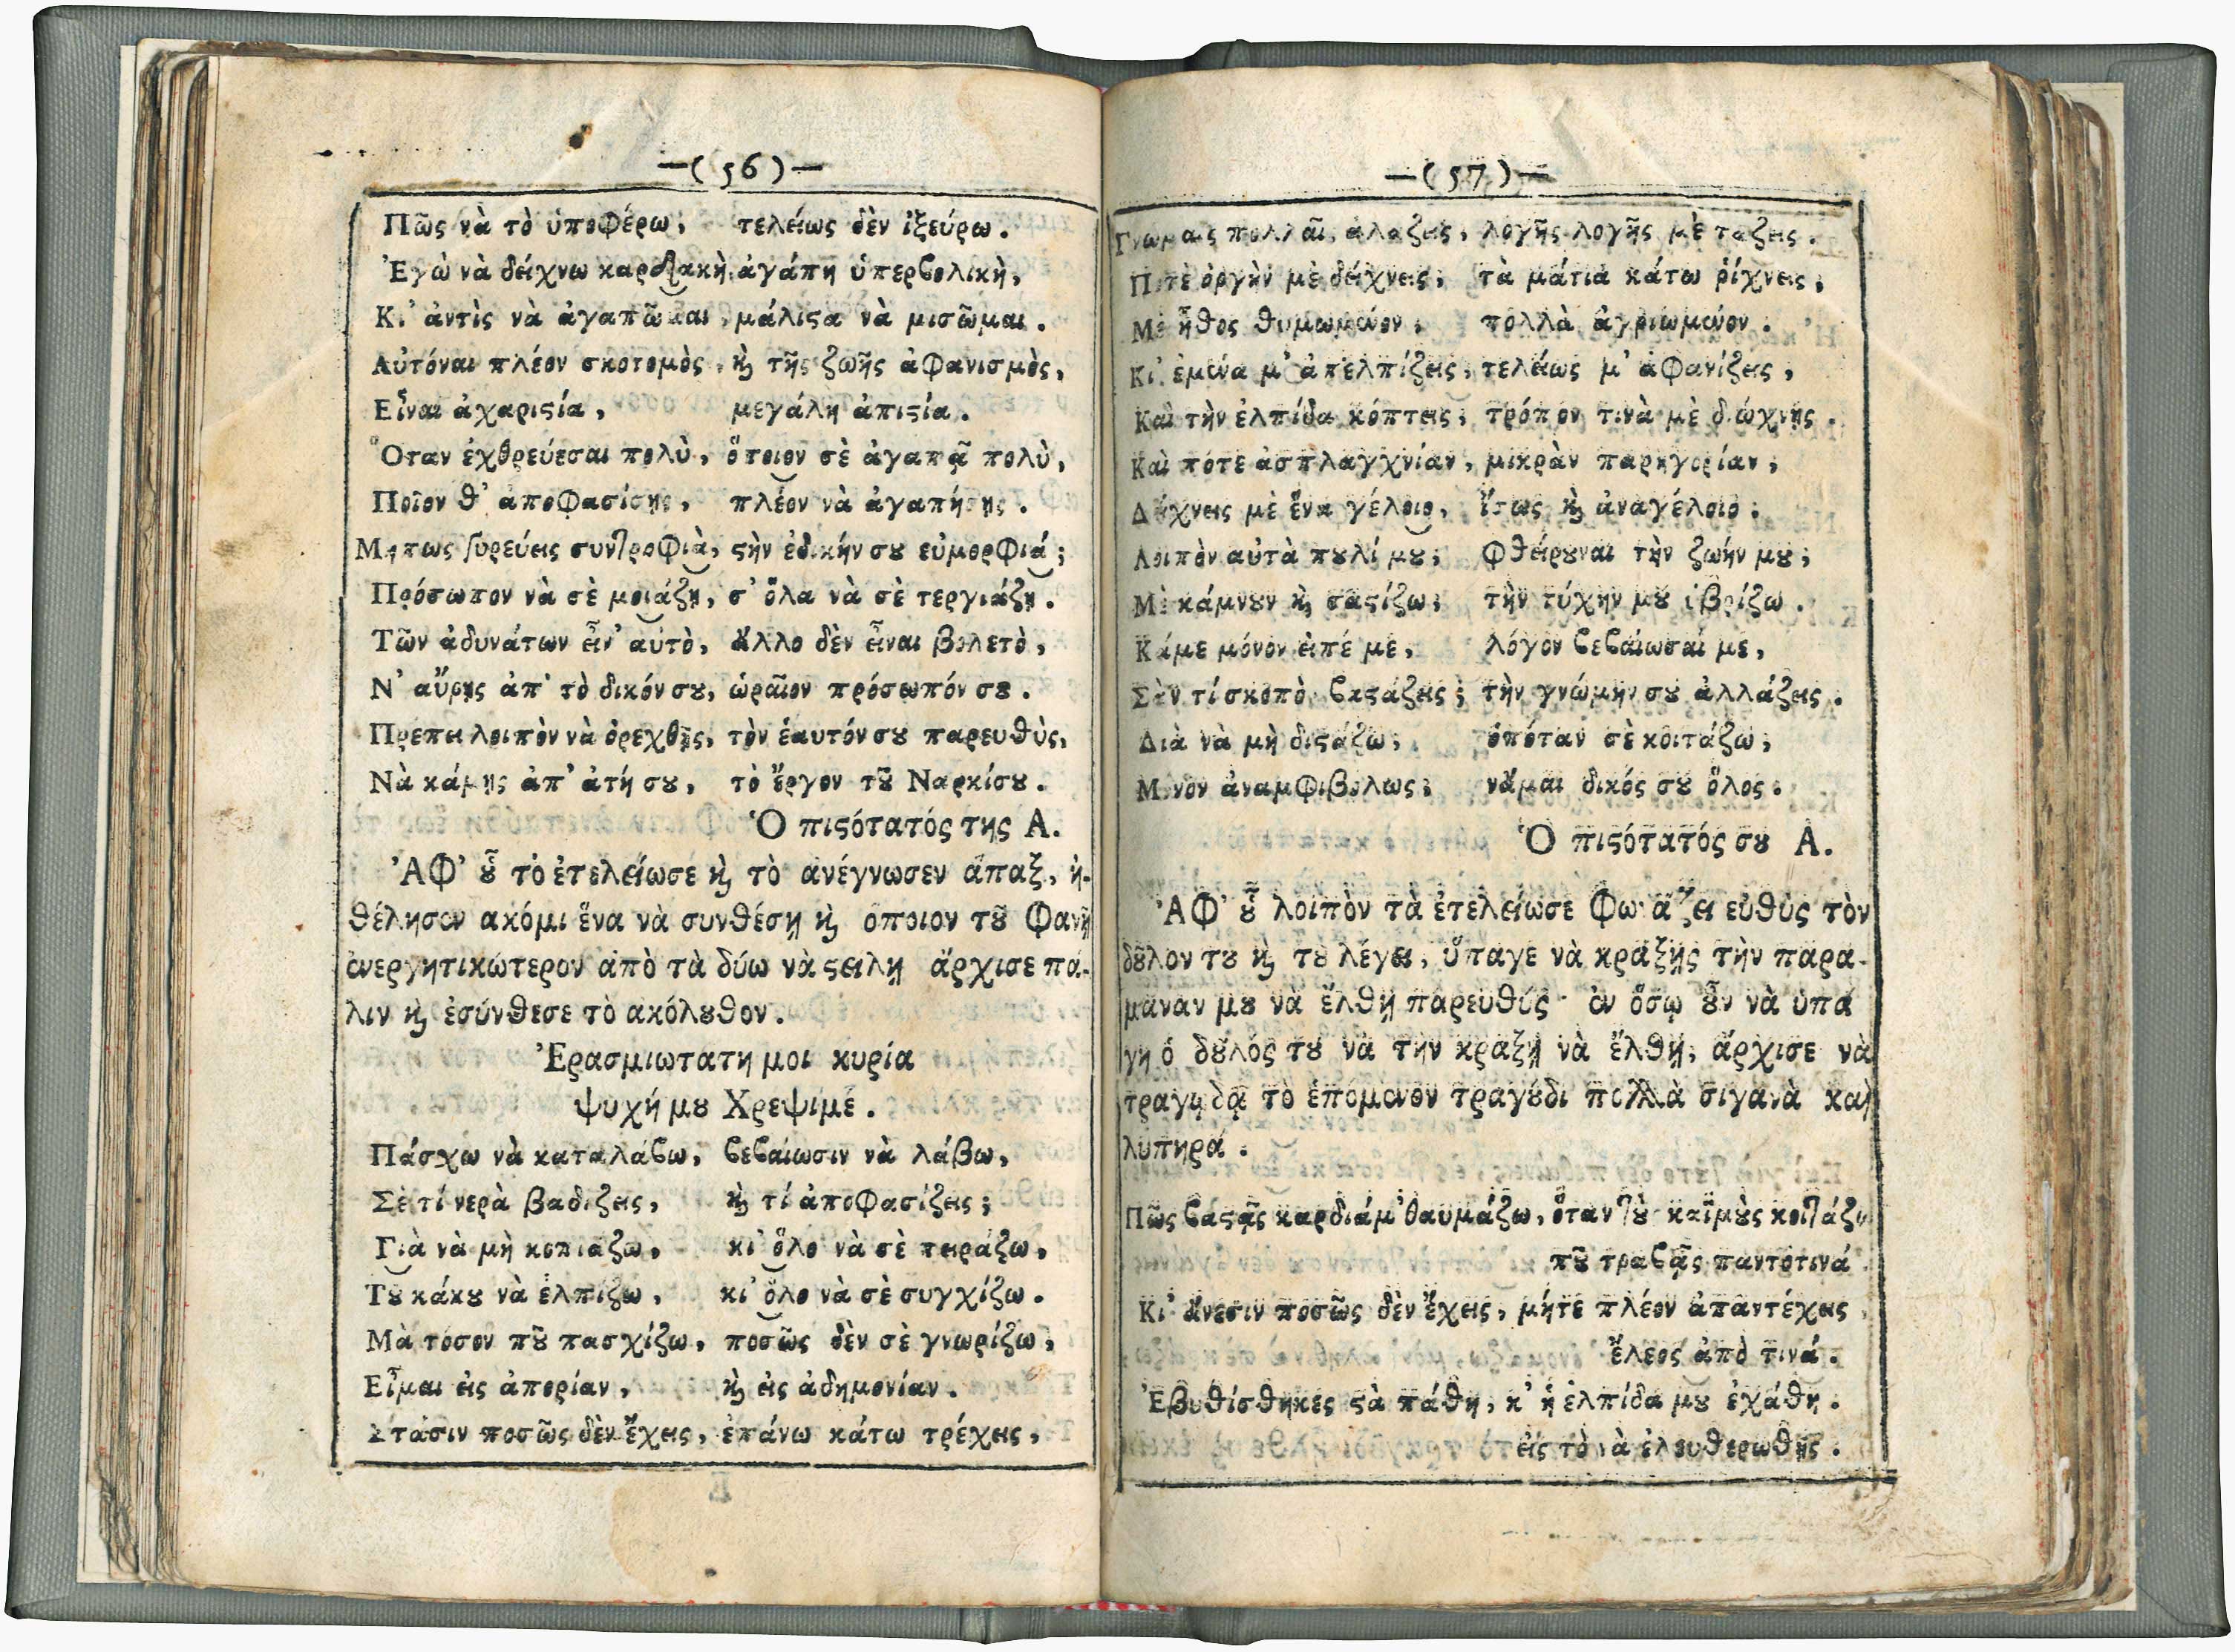 —( 56 )—
Πῶς νὰ τὸ ὑποφέρω, τελείως δὲν ἰξεύρω.
Ἐγὼ νὰ δείχνω καρδιακὴ ἀγάπη ὑπερβολικὴ,
Κι' ἀντὶς νὰ ἀγαπῶμαι, μάλιϛα νὰ μισῶμαι.
Αὐτόναι πλέον σκοτομὸς, ϗ τῆς ζωῆς ἀφανισμὸς,
Εἶναι ἀχαριϛία, μεγάλη ἀπιϛία.
Ὅταν ἐχθρεύεσαι πολὺ, ὅποιον σὲ ἀγαπᾷ πολὺ,
Ποῖον θ' ἀποφασίσῃς, πλέον νὰ ἀγαπήσῃς.
Μήπως γυρεύεις συντροφιὰ, ϛὴν ἐδικήν σȣ εὐμορφιά;
Πρόσωπον νὰ σὲ μοιάζῃ, σ' ὅλα νὰ σὲ τεργιάζῃ.
Τῶν ἀδυνάτων εἶν' αὐτὸ, ἄλλο δὲν εἶναι βολετὸ,
Ν' αὕρῃς ἀπ' τὸ δικόν σȣ, ὡραῖον πρόσωπόν σȣ.
Πρέπει λοιπὸν νὰ ὀρεχθῇς, τὸν ἑαυτόν σȣ παρευθὺς,
Νὰ κάμῃς ἀπ' ἀτή σȣ, τὸ ἔργον τȣ͂ Ναρκίσȣ.
Ὁ πιϛότατός της Α.
Ἀφ' ȣ͗͂ τὸ ἐτελείωσε ϗ τὸ ἀνέγνωσεν ἅπαξ, ἠ-
θέλησεν ακόμι ἕνα νὰ συνθέσῃ ϗ ὅποιον τȣ͂ φανῇ
ἐνεργητικώτερον ἀπὸ τὰ δύω νὰ ϛείλῃ ἄρχισε πά-
λιν ϗ ἐσύνθεσε τὸ ακόλȣθον.
Ἐρασμιωτατη μοι κυρία
ψυχή μȣ Χρεψιμέ.
Πάσχω νὰ καταλάβω, βεβαίωσιν νὰ λάβω,
Σὲ τί νερὰ βαδίζεις, ϗ τί ἀποφασίζεις;
Γιὰ νὰ μὴ κοπιάζω, κι' ὅλο νὰ σὲ πειράζω,
Τȣ κάκȣ νὰ ἐλπίζω, κι' ὅλο νὰ σὲ συγχίζω.
Μὰ τόσον πȣ͂ πασχίζω, ποσῶς δὲν σὲ γνωρίζω,
Εἶμαι εἰς ἀπορίαν, ϗ εἰς ἀδημονίαν.
Στάσιν ποσῶς δὲν ἔχεις, ἐπάνω κάτω τρέχεις,
—( 57 )—
Γνώμαις πολλαῖς ἀλάζεις, λογῆς λογῆς μὲ τάζεις.
Ποτὲ ὀργὴν μὲ δείχνεις, τὰ μάτια κάτω ῥίχνεις,
Μὲ ἦθος θυμωμένον, πολλὰ ἀγριωμένον.
Κι' ἐμένα μ' ἀπελπίζεις, τελείως μ' ἀφανίζεις,
Καὶ τὴν ἐλπίδα κόπτεις, τρόπον τινὰ μὲ διώχνῃς.
Καὶ πότε ἀσπλαγχνίαν, μικρὰν παρηγορίαν,
Δείχνεις μὲ ἕνα γέλοιο, ἴσως ϗ ἀναγέλοιο.
Λοιπὸν αὐτὰ πȣλί μȣ, φθείρȣναι τὴν ζωήν μȣ,
Μὲ κάμνȣν ϗ σαϛίζω, τὴν τύχην μȣ ὑβρίζω.
Κάμε μόνον εἰπέ με, λόγον βεβαίωσαί με,
Σὰν τί σκοπὸ βαϛάζεις; τὴν γνώμην σȣ ἀλλάζεις.
Διὰ νὰ μὴ διϛάζω, ὁπόταν σὲ κοιτάζω,
Μόνον ἀναμφιβόλως, νἄμαι δικός σȣ ὅλος.
Ὁ πιϛότατός σȣ Α.
Ἀφ' ȣ͗͂ λοιπὸν τὰ ἐτελείωσε φωνάζει εὐθὺς τὸν
δȣ͂λον τȣ ϗ τȣ λέγει, ὕπαγε νὰ κράξῃς τὴν παρα-
μάναν μȣ νὰ ἔλθῃ παρευθύς· ἐν ὅσῳ ȣ͗͂ν νὰ ὑπά
γῃ ὁ δȣ͂λός τȣ νὰ τὴν κράξῃ νὰ ἔλθῃ, ἄρχισε νὰ
τραγῳδᾷ τὸ ἑπόμενον τραγȣ́δι πολλὰ σιγανὰ καὶ
λυπηρά.
Πῶς βαϛᾷς καρδιάμ' θαυμάζω, ὅταν τȣ̀ς καϊμȣ̀ς κοιτάζω
πȣ͂ τραβᾷς παντοτινά.
Κι' ἄνεσιν ποσῶς δὲν ἔχεις, μήτε πλέον ἀπαντέχεις
ἔλεος ἀπὸ τινά.
Ἐβυθίσθηκες ϛὰ πάθη, κ' ἡ ἐλπίδα μȣ ἐχάθη.
εἰς τὸ νὰ ἐλευθερωθῇς.